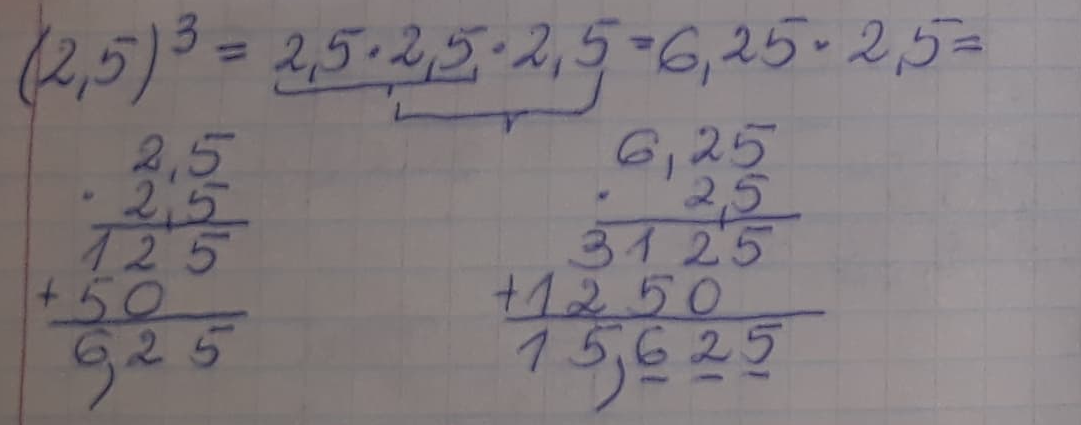 (2,5)³ = 2,5 · 2,5 · 2,5 = 6,25 · 2,5 =
2,5
· 2,5
125
+ 50
6,25
6,25
· 2,5
3125
+ 1250
15,625